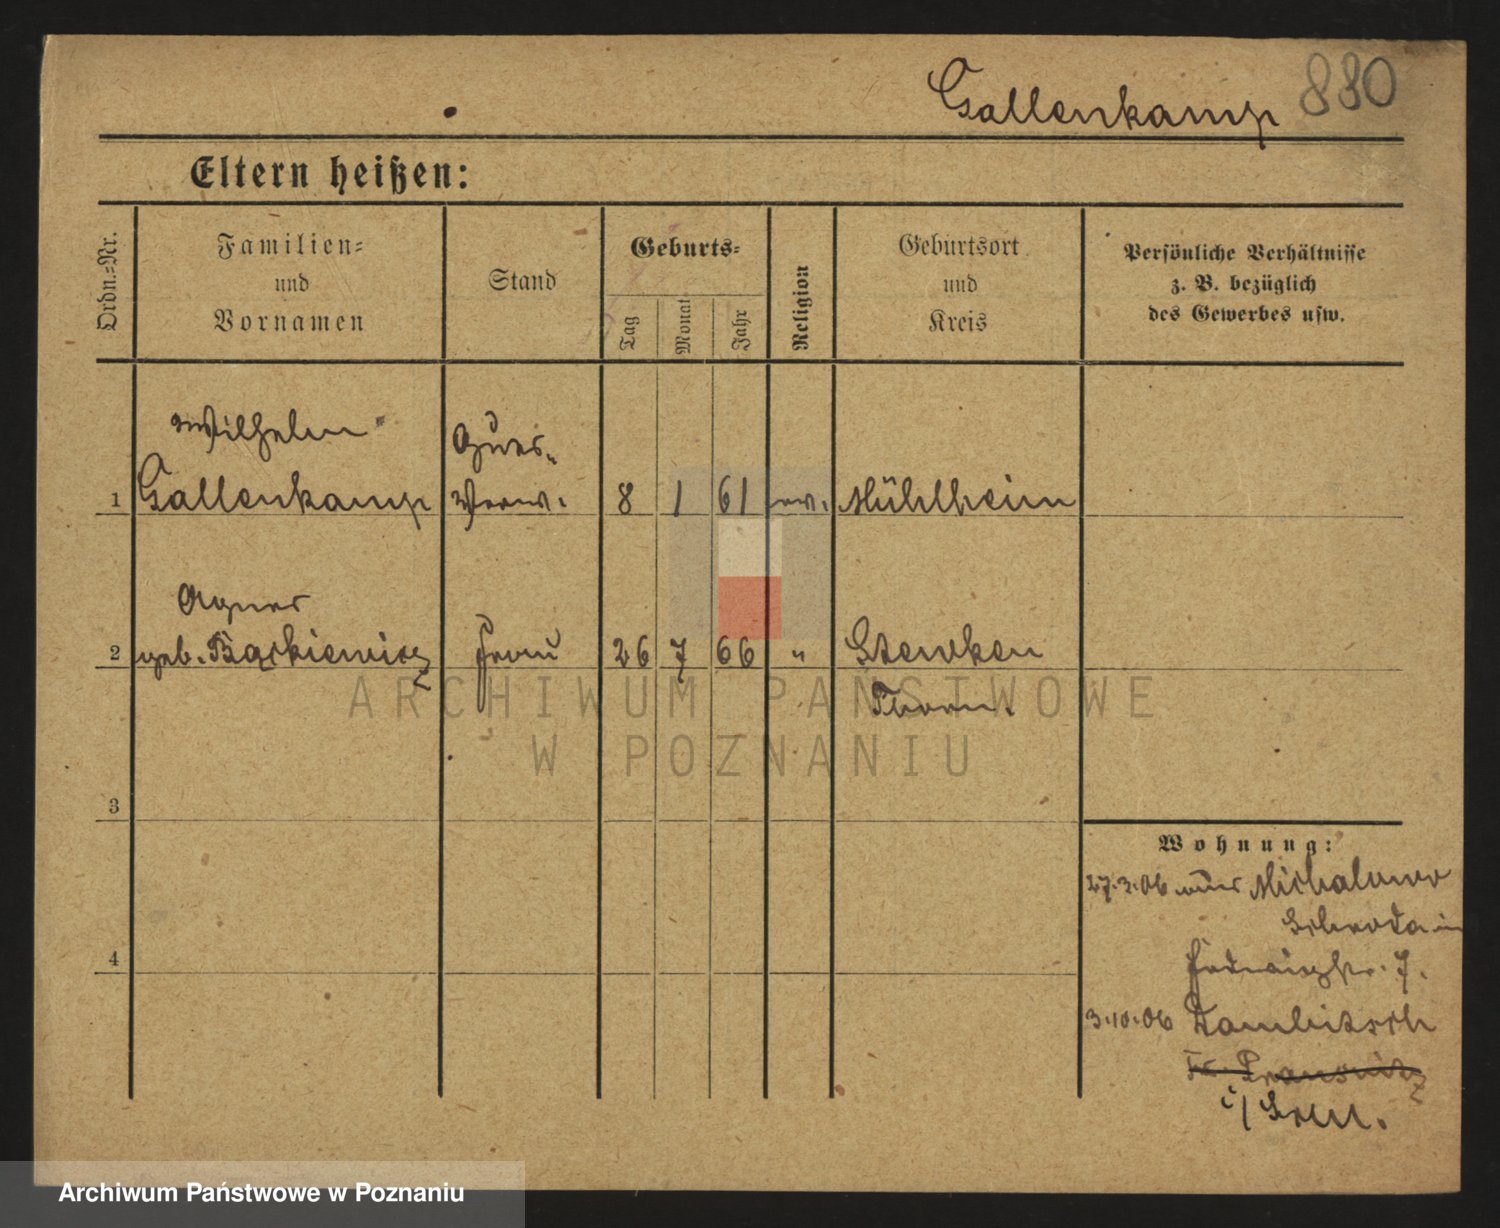 Gallenkamp 880
Eltern heißen:
Ordn.-Nr.
Familien-
und
Vornamen
Stand
Geburts-
Tag
Monat
Jahr
Religion
Geburtsort
und
Kreis
Persönliche Verhältnisse
z. B. bezüglich
des Gewerbes usw.
Wilhelm
1 Gallenkamp
Verw. 8 1 61 ev. Mühlheim
Agnes
2 geb. Frau 26 7 66 " Stewken
Thorn.
3
4
Wohnung:
27.3.06 Michalowo
Schroda
7.
3.10.06 Dambitsch
i/
ARCHIWUM PAŃSTWOWE
W POZNANIU
Archiwum Państwowe w Poznaniu